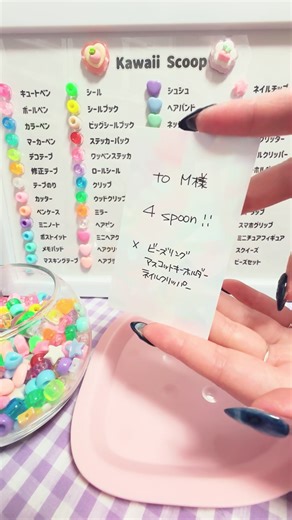 Kawaii Scoop
キュートペン
ボールペン
カラーペン
マーカーペン
デコテープ
修正テープ
テープのり
カッター
ペンケース
ミニノート
ポストイット
メモパット
マスキングテープ
シール
シールブック
ビッグシールブック
ステッカーパック
ワッペンステッカ
ロールシール
クリップ
ウッドクリップ
ミラー
ヘア
ミニ
ヘアク
ヘアブ
シュシュ
ヘアバンド
ネッ
ネイルチップ
スマホグリップ
ミニチュアフィギュア
スクイーズ
ビーズセット
to M様
4 spoon !!
× ビーズリング
マスコットキーホルダー
ネイルクリッパー